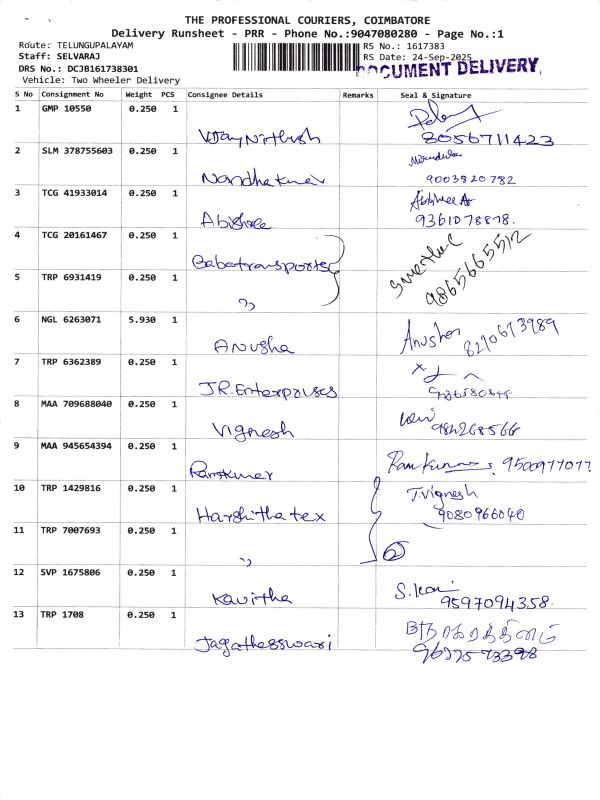 THE PROFESSIONAL COURIERS, COIMBATORE
Delivery Runsheet - PRR - Phone No.:9047080280 - Page No.:1
Route: TELUNGUPALAYAM
RS No.: 1617383
Staff: SELVARAJ
RS Date: 24-Sep-2025
DRS No.: DCJB161738301
DOCUMENT DELIVERY
Vehicle: Two Wheeler Delivery
S No Consignment No Weight PCS Consignee Details Remarks Seal & Signature
1 GMP 10550 0.250 1
Vijay Nithish 8056711423
2 SLM 378755603 0.250 1
Nandhakumar 9003820782
3 TCG 41933014 0.250 1
Abishree 9361078878.
4 TCG 20161467 0.250 1
Babatransports 9865665512
5 TRP 6931419 0.250 1
"
6 NGL 6263071 5.930 1
Anusha Anusha 8270673989
7 TRP 6362389 0.250 1
JR.Enterprises
8 MAA 709688040 0.250 1
Vignesh
9 MAA 945654394 0.250 1
Ramkumar Ramkumar 9500977077
10 TRP 1429816 0.250 1 T.Vignesh
Harshitha tex 9080966040
11 TRP 7007693 0.250 1
" 2
12 SVP 1675806 0.250 1
Kavitha 9597094358
13 TRP 1708 0.250 1
Jagathesswari